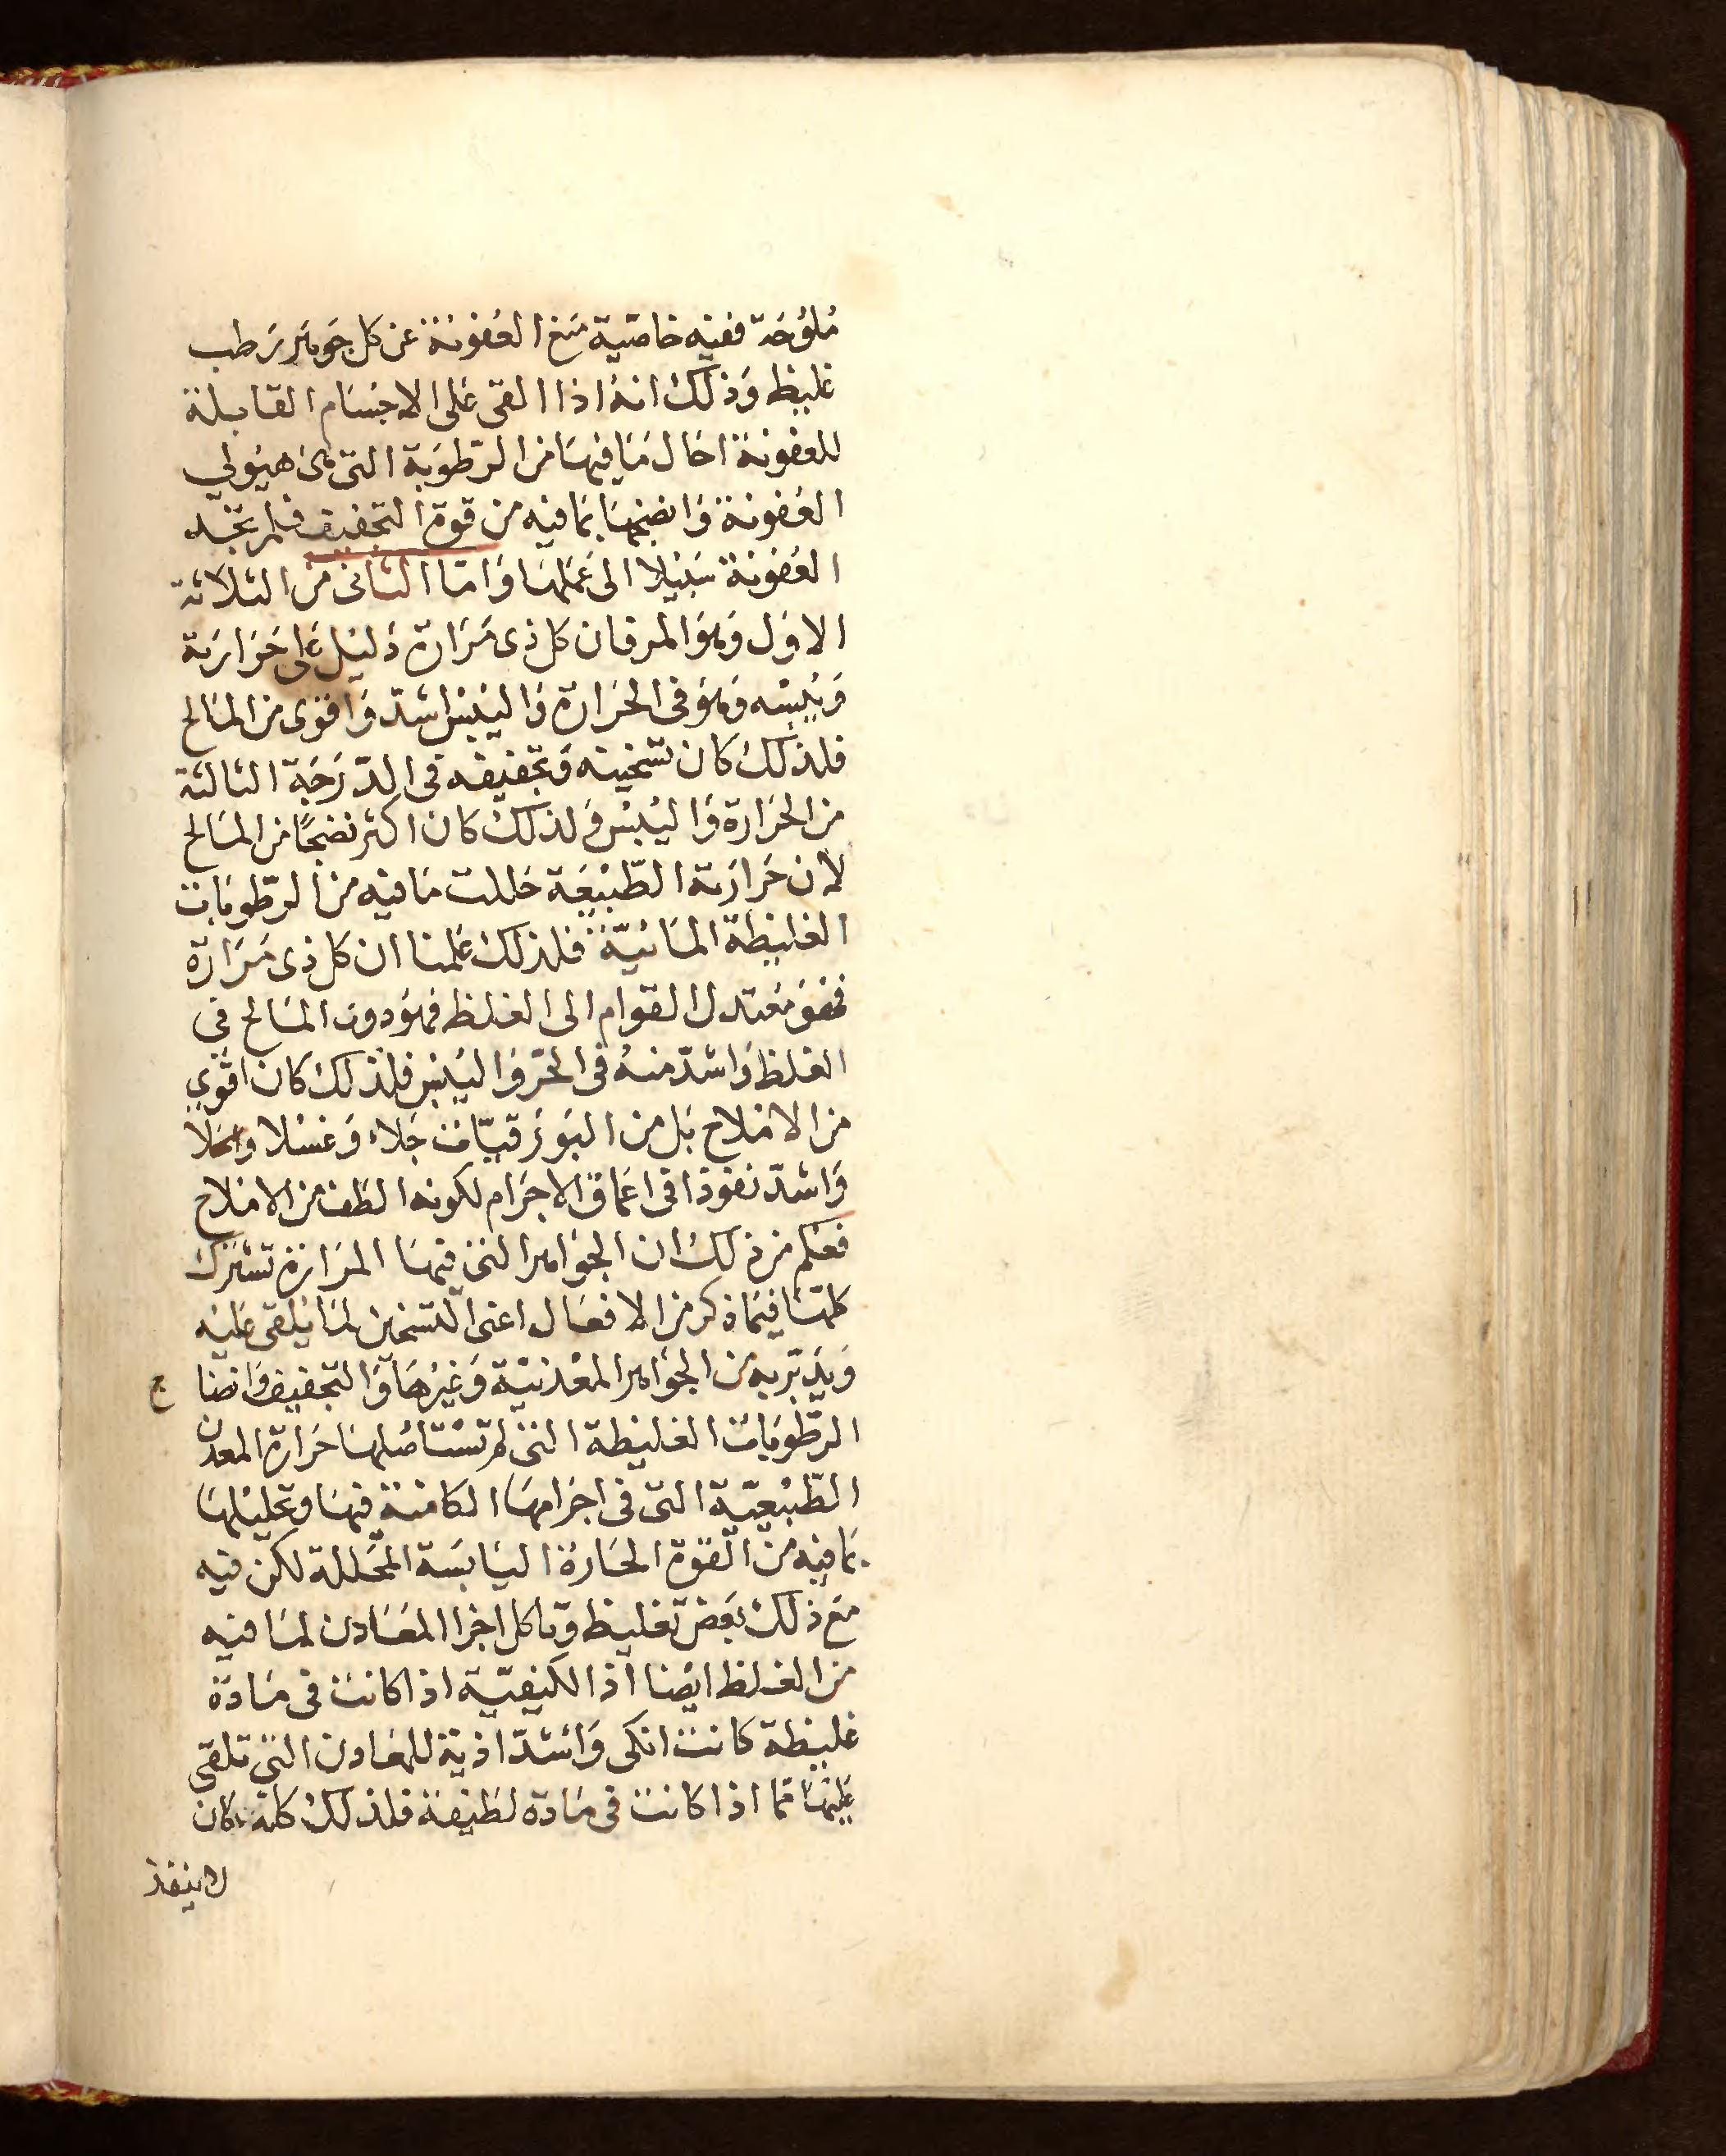 مُلوُحَة ففيه خاصّية منع العُفونة عن كل جَوهر رَطب
غليظ وَذلك انهُ اذا القى عَلى الاجسَام القابلة
للعفونة احَال مَا فيهَا من الرّطوَبة التى هىَ هيَولي
العُفونة وَانضجهَا بمَا فيه من قوة التجفيف فلم تجد
العُفونة سَبيْلا الى عَملهَا وَامّا الثانى من الثلاثة
الاوَل وَهوَ المر فان كل ذى مَرَارة دَليْل عَلى حَرَارَته
وَيُبسْه وَهوَ فى الحَرَارة وَاليُبْس اشدّ وَاقوَى من المَالح
فلذلك كان تسخينه وَتجفيفه فى الدّرَجَة الثالثة
من الحَرَارة وَاليُبْس وَلذلك كان اكثر نضجًا من المَالح
لان حَرَارَة الطّبْيعَة حَللت مَا فيْه من الرّطوبَات
الغليظة المَائيّة فلذلك عَلمنا ان كل ذى مَرَارَة
فهوَ مُعتدل القوام الى الغلظ فهوَ دون المَالح في
الغلظ وَاشدّ منهُ فى الحرّ وَاليُبْس فلذلك كان اقوي
من الامْلاح بَل من البَورَقيّات جَلاء وَغسْلا وانحلا
وَاشدّ نفوذا فى اعمَاق الاجرَام لكونه الطَف من الامْلاح
فعُلم من ذلك ان الجوَاهر التى فيهَا المرَارَة تشترك
كلهَا فيمَا ذكر من الافعَال اعنى التسْخين لمَا يُلقى عليْه
وَيدَبّر به من الجوَاهر المعْدنيْة وَغيْرهَا وَالتجفيف وَانضا ج
الرّطوبَات الغليْظة التى لم تسْتاصْلهَا حَرَارة المعدن
الطّبْيعيّة التى فى اجرَامهَا الكامنة فيهَا وتحليْلهَا
بمَا فيْه من القوة الحَارة اليَابسَة المحَللة لكن فيه
مَع ذلك بَعض تغليظ وَتاكل اجزا المعَادن لمَا فيه
من الغلظ ايْضا اذ الكيْفيّة اذا كانت فى مَادة
غليظة كانت انكى وَاشدّ اذية للمعَادن التي تلقى
عليْهَا ممّا اذا كانت فى مَادة لطيْفة فلذلك كله كان
لا ينفذ